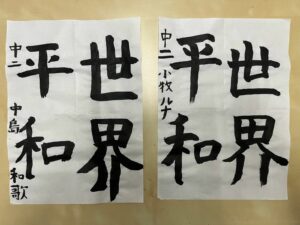 世界
平和
中二 中島 和歌
世界
平和
中二 小牧 ルナ